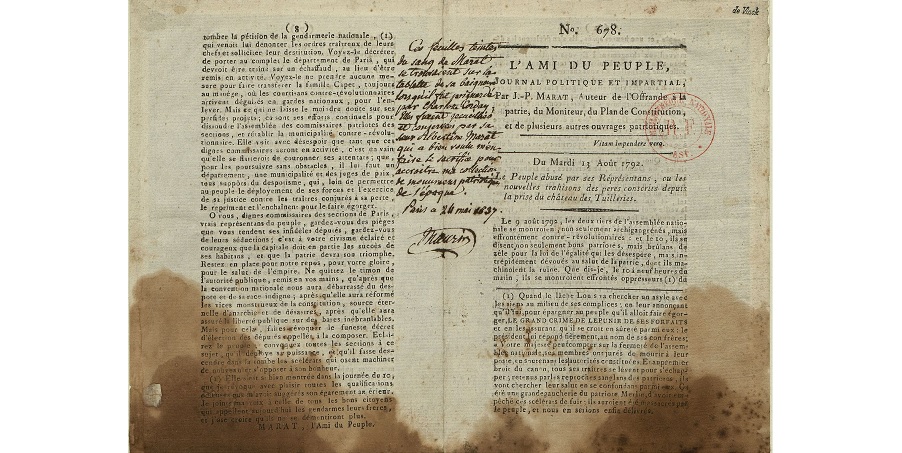 de Vinck
( 8 )
tombe la pétition de la gendarmerie nationale, (1)
qui venait lui dénoncer les ordres traîtreux de leurs
chefs et solliciter leur destitution. Voyez-le décréter
de porter au complet le département de Paris, qui
devroit être traîné sur un échaffaud, au lieu d'être
remis en activité. Voyez-le ne prendre aucune me-
sure pour faire transférer la famille Capet, toujours
au manège, où les cohortes contre-révolutionnaires
arrivent déguisés en gardes nationaux, pour l'en-
lever. Mais ce qui ne laisse le moindre doute sur ses
perfides projets; ce sont ses efforts continuels pour
dissoudre l'assemblée des commissaires patriotes des
sections, et rétablir la municipalité contre-révolu-
tionnaire. Elle voit avec désespoir que tant que ces
dignes commissaires seront en activité, c'est en vain
qu'elle se flatteroit de couronner ses attentats; que,
pour les poursuivre sans obstacles, il lui faut un
département, une municipalité et des juges de paix,
tous suppôts du despotisme, qui, loin de permettre
au peuple le déployement de ses forces et l'exercice
de sa justice contre les traîtres conjurés à sa perte,
le répriment et l'enchaînent pour le faire égorger.
O vous, dignes commissaires des sections de Paris,
vrais représentans du peuple, gardez-vous des pièges
que vous tendent ses infidèles députés, gardez-vous
de leurs séductions; c'est à votre civisme éclairé et
courageux que la capitale doit en partie les succès de
ses habitans, et que la patrie devra son triomphe.
Restez en place pour notre repos, pour votre gloire,
pour le salut de l'empire. Ne quittez le timon de
l'autorité publique, remis en vos mains, qu'après que
la convention nationale nous aura débarrassé du des-
pote et de sa race indigne; après qu'elle aura réformé
les vices monstrueux de la constitution, source éter-
nelle d'anarchie et de désastres; après qu'elle aura
assuré la liberté publique sur des bases inébranlables.
Mais pour cela, faites révoquer le funeste décret
d'élection des députés appellés à la composer. Eclai-
rez le peuple, convoquez toutes les sections à ce
sujet, qu'il déploye sa puissance, et qu'il fasse des-
cendre dans la tombe les scélérats qui osent machiner
de nouveau, s'opposer à son bonheur.
MARAT, l'Ami du Peuple.
Ces feuilles teintes
du sang de Marat
se trouvaient sur la
tablette de sa baignoire
lorsqu'il fut poignardé
par Charlotte Corday;
elles furent recueillies
et conservées par sa
sœur Albertine Marat
qui a bien voulu m'en
faire le sacrifice pour
accroître ma collection
de monumens patriotiques
de l'époque.
Paris ce 24 mai 1837.
Maurin
No. 678.
L'AMI DU PEUPLE,
JOURNAL POLITIQUE ET IMPARTIAL,
Par J.-P. MARAT, Auteur de l'Offrande à la
patrie, du Moniteur, du Plan de Constitution,
et de plusieurs autres ouvrages patriotiques.
Vitam impendere vero.
Du Mardi 13 Août 1792.
Le Peuple abusé par ses Représentans, ou les
nouvelles trahisons des peres conscrits depuis
la prise du château des Tuilleries.
Le 9 août 1792, les deux tiers de l'assemblée natio-
nale se montroient, non seulement archigangrénés, mais
effrontément contre-révolutionnaires: et le 10, ils se
disent non seulement bons patriotes, mais brûlans de
zèle pour la loi de l'égalité qui les désespère, mais in-
trépidement dévoués au salut de la patrie, dont ils ma-
chinoient la ruine. Que dis-je, le 10 à neuf heures du
matin, ils se montroient effrontés oppresseurs (1) du
(1) Quand le lâche Louis va chercher un asyle avec
les siens au milieu de ses complices, en leur annonçant
qu'il vient pour épargner au peuple qu'il alloit faire égor-
ger, LE GRAND CRIME DE LE PUNIR DE SES FORFAITS
et en les assurant qu'il se croit en sûreté parmi eux: le
président lui répond fièrement, au nom de ses confrères;